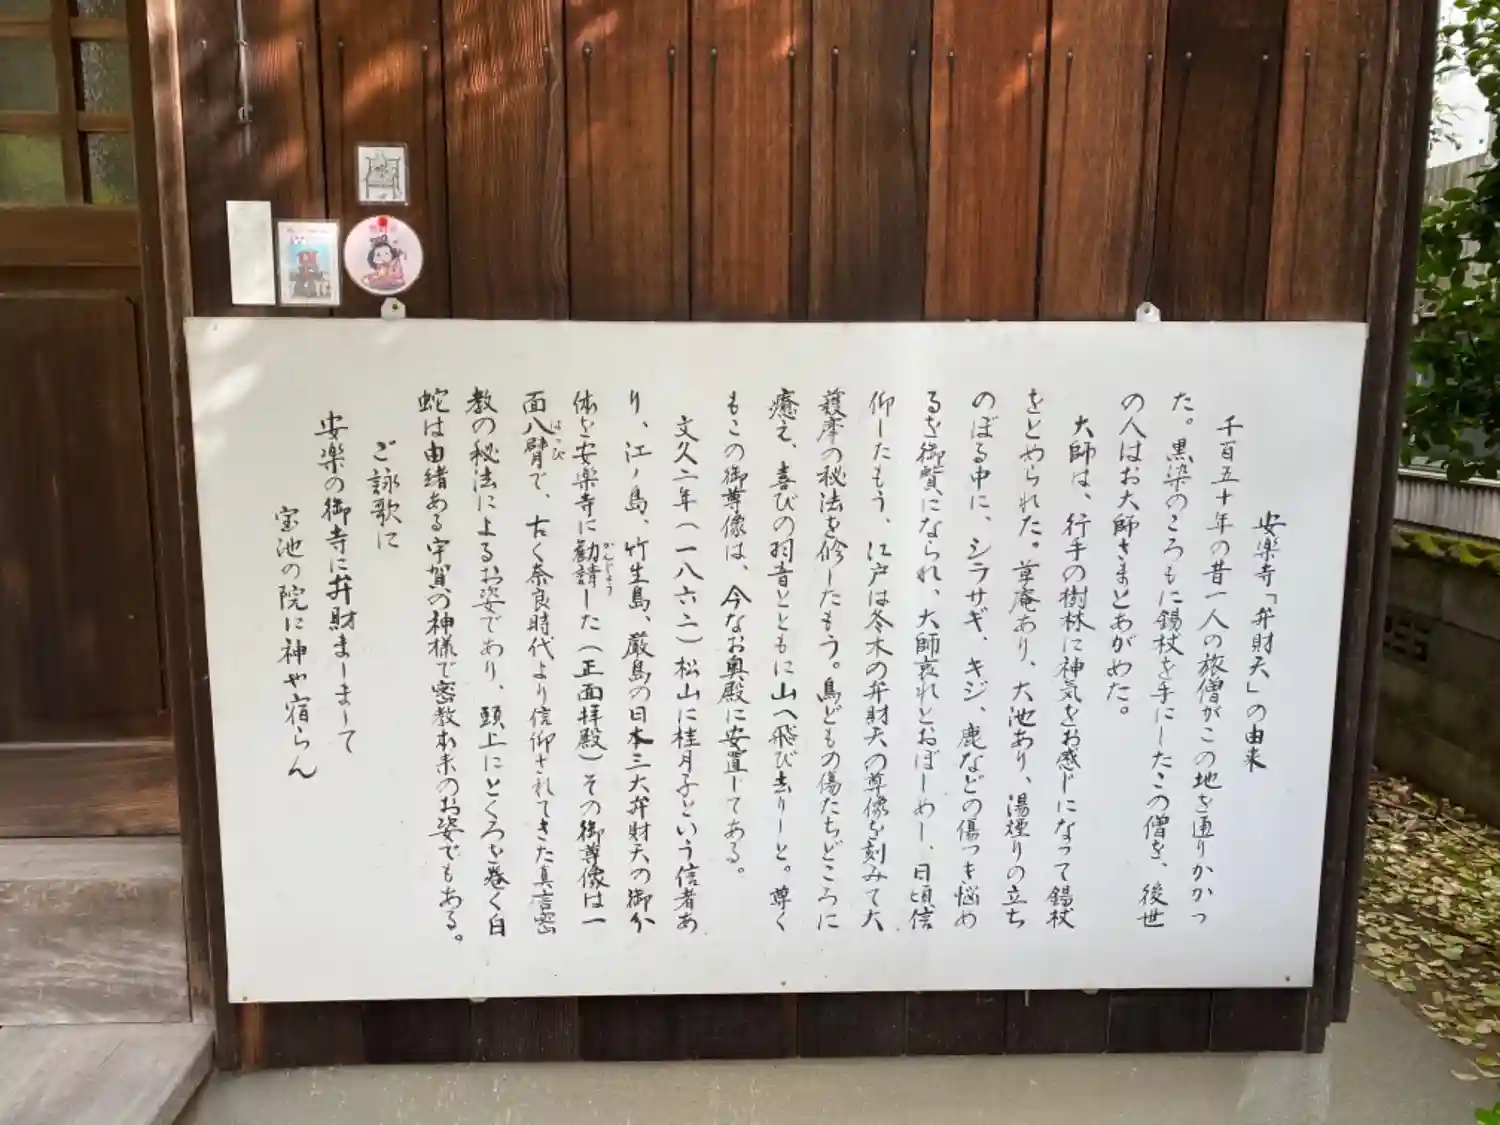 安楽寺「弁財天」の由来
千百五十年の昔一人の旅僧がこの地を通りかかっ
た。黒染のころもに錫杖を手にしたこの僧を、後世
の人はお大師さまとあがめた。
大師は、行手の樹林に神気をお感じになって錫杖
をとめられた。草庵あり、大池あり、湯煙りの立ち
のぼる中に、シラサギ、キジ、鹿などの傷つき悩め
るを御覧になられ、大師哀れとおぼしめし、日頃信
仰したもう、江戸は冬木の弁財天の尊像を刻みて大
護摩の秘法を修したもう。鳥どもの傷たちどころに
癒え、喜びの羽音とともに山へ飛び去りしと。尊く
もこの御尊像は、今なお奥殿に安置してある。
文久二年(一八六二)松山に桂月子という信者あ
り、江ノ島、竹生島、厳島の日本三大弁財天の御分
体を安楽寺に勧請した(正面拝殿)その御尊像は一
かんじょう
面八臂で、古く奈良時代より信仰されてきた真言密
はっぴ
教の秘法によるお姿であり、頭上にとくろを巻く白
蛇は由緒ある宇賀の神様で密教本来のお姿でもある。
ご詠歌に
安楽の御寺に弁財ましまして
宝池の院に神や宿らん